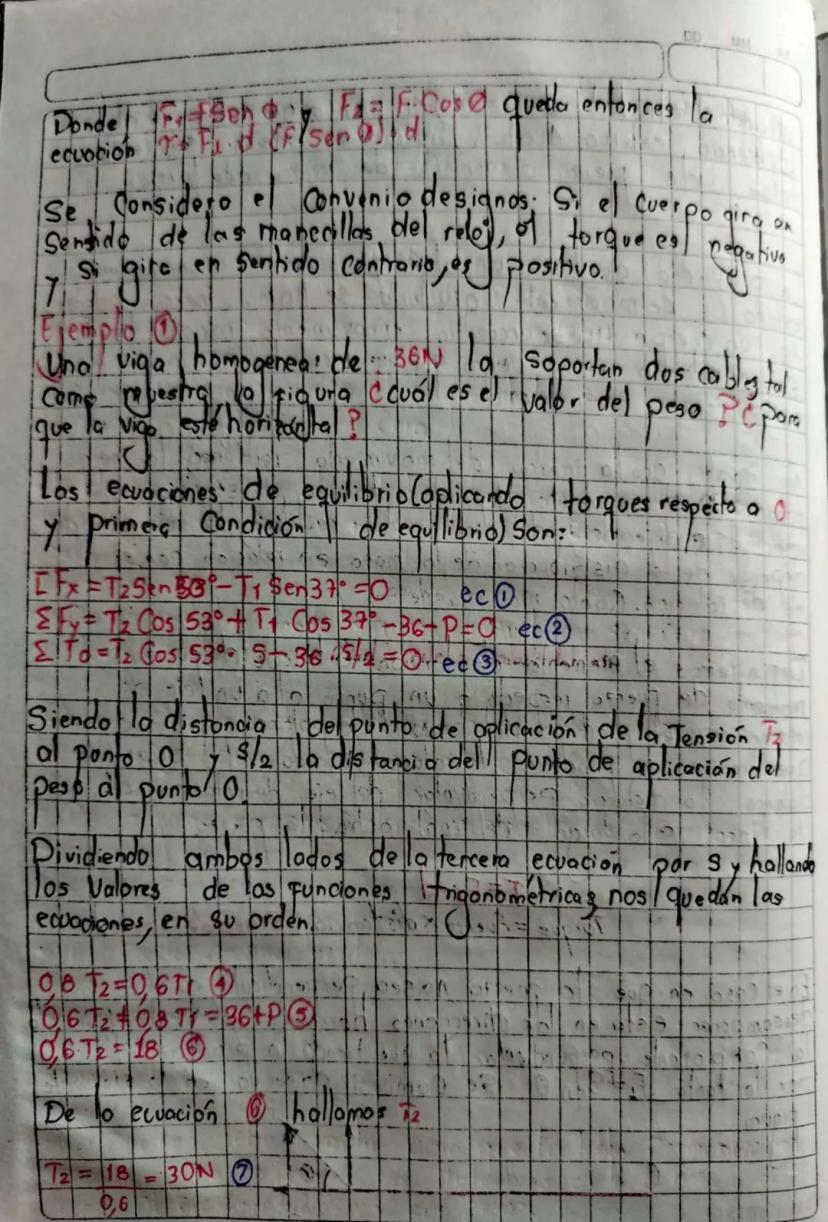 DD MM AA
Donde F₁ = F Sen θ y F₂ = F Cos θ queda entonces la
ecuación τ = F₁ . d (F Sen θ) . d
Se Considero el Convenio designos. Si el cuerpo gira en
Sentido de las manecillas del reloj, el torque es negativo
y si gira en Sentido Contrario, es positivo.
Ejemplo ①
Una viga homogenea: de 36N la soportan dos cables tal
como muestra la figura ¿cuál es el valor del peso P¿ para
que la viga esté horizontal?
Las ecuaciones de equilibrio (aplicando torques respecto a O
y primera Condición de equilibrio) Son:
ΣFx = T2 Sen 53° - T1 Sen 37° = 0 ec ①
ΣFy = T2 Cos 53° + T1 Cos 37° - 36 + P = 0 ec ②
ΣTo = T2 Cos 53° . S - 36 . S/2 = 0 ec ③
Siendo la distancia del punto de aplicación de la Tensión T2
al punto O y S/2 la distancia del punto de aplicación del
peso al punto O
Dividiendo ambos lados de la tercera ecuación por S y hallando
los Valores de las Funciones trigonométricas nos quedan las
ecuaciones, en su orden
0,8 T2 = 0,6 T1 ④
0,6 T2 + 0,8 T1 = 36 + P ⑤
0,6 T2 = 18 ⑥
De la ecuación ⑥ hallamos T2
T2 = 18 = 30N ⑦
0,6